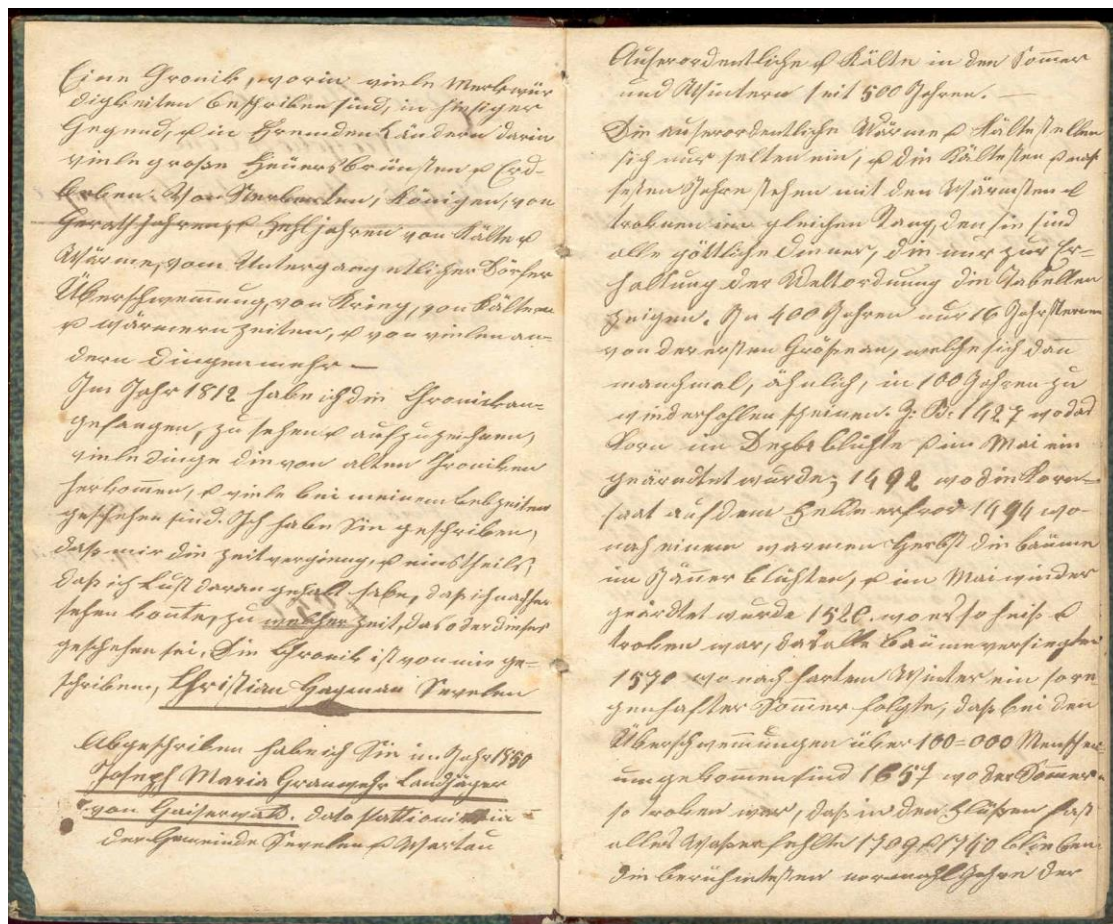 Eine Gronik, worin viele Merkwür
digkeiten beschriben sind, in hiesiger
Gegend, & in Fremden Ländern darin
viele große Feüersbrünsten & Erd-
beben. Von Regenten, Königen, von
Gerathjahren, & Fehljahren von Kälte &
Wärme, vom Untergang etlicher Dörfer
Überschwemmung, von Krieg, von kältern
& wärmern Zeiten, & von vielen an-
dern Dingen mehr —
Im Jahr 1812 habe ich die Chronick an-
gefangen, zu sehen & aufzuzeichnen,
viele Dinge die von alten Groniken
herkommen, & viele bei meinem Lebzeiten
geschehen sind. Ich habe Sie geschriben,
daß mir die Zeit vergieng, & einstheils,
daß ich Lust daran gehabt habe, daß ich nachher
sehen konnte, zu welcher Zeit, das oder dieses
geschehen sei, Die Chronik ist von mir ge-
schriben, Christian Hagman Sevelen
Abgeschriben habe ich Sie im Jahr 1850
Joseph Maria Granwehr Landjäger
von Gaiserwald. dato stationirt in
der Gemeinde Sevelen & Wartau
Auserordentliche & Kälte in den Sommer
und Wintern seit 500 Jahren. —
Die auserordentliche Wärme & Kälte stellen
sich nur selten ein, & die kältesten & nas
sesten Jahre stehen mit den wärmsten &
troknen im gleichen Rang, den sie sind
alle göttliche Diener, die nur zur Er-
haltung der Weltordnung die Tabellen
zeigen. In 400 Jahren nur 16 Jahr
von der ersten Größe an, welche sich dan
manchmal, ähnlich, in 100 Jahren zu
wiederhollen scheinen. Z: B: 1427 wo das
Korn im Dezbr blühte & im Mai ein
geärndtet wurde; 1492 wo die Korn-
saat auf dem Felde erfror 1494 wo
nach einem warmen Herbst die Bäume
im Jänner blühten, & im Mai wieder
geärdtet wurde 1520. wo es so heiß &
troken war, das alle Bäume versiegten
1570 wo nach hartem Winter ein so re-
genhafter Sommer folgte, daß bei den
Überschwemmungen über 100=000 Menschen
umgekommen sind 1657 wo der Sommer
so troken war, daß in den Flüßen fast
alles Waßer fehlte 1709 & 1740 blieben
die berühmtesten Jahre der